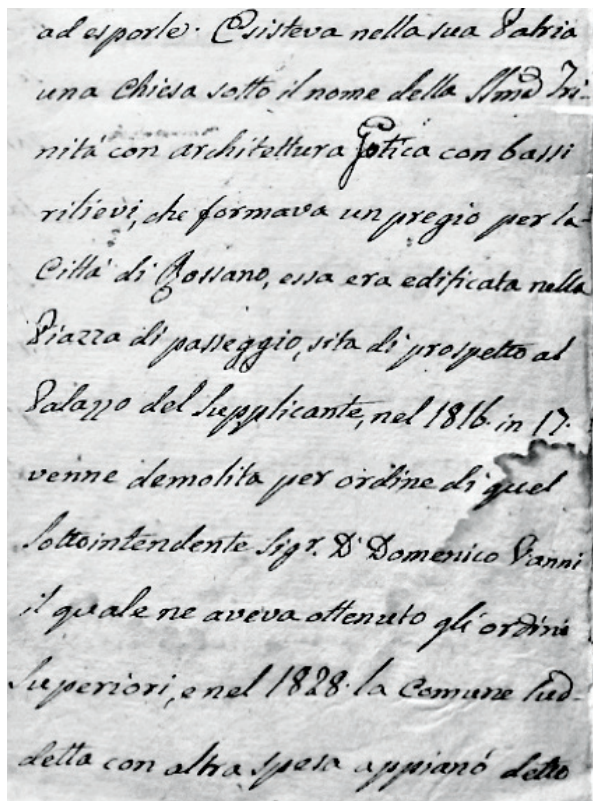 ad esporle. Esisteva nella sua Patria
una Chiesa sotto il nome della SSmã Tri-
nità con architettura Gotica con bassi
rilievi, che formava un pregio per la
Città di Rossano, essa era edificata nella
Piazza di passeggio, sita di prospetto al
Palazzo del Supplicante, nel 1816. in 17.
venne demolita per ordine di quel
Sottointendente Sigr. Dn Domenico Vanni
il quale ne aveva ottenuto gli ordini
Superiori, e nel 1828. la Comune Sud-
detta con altra spesa appianò detto